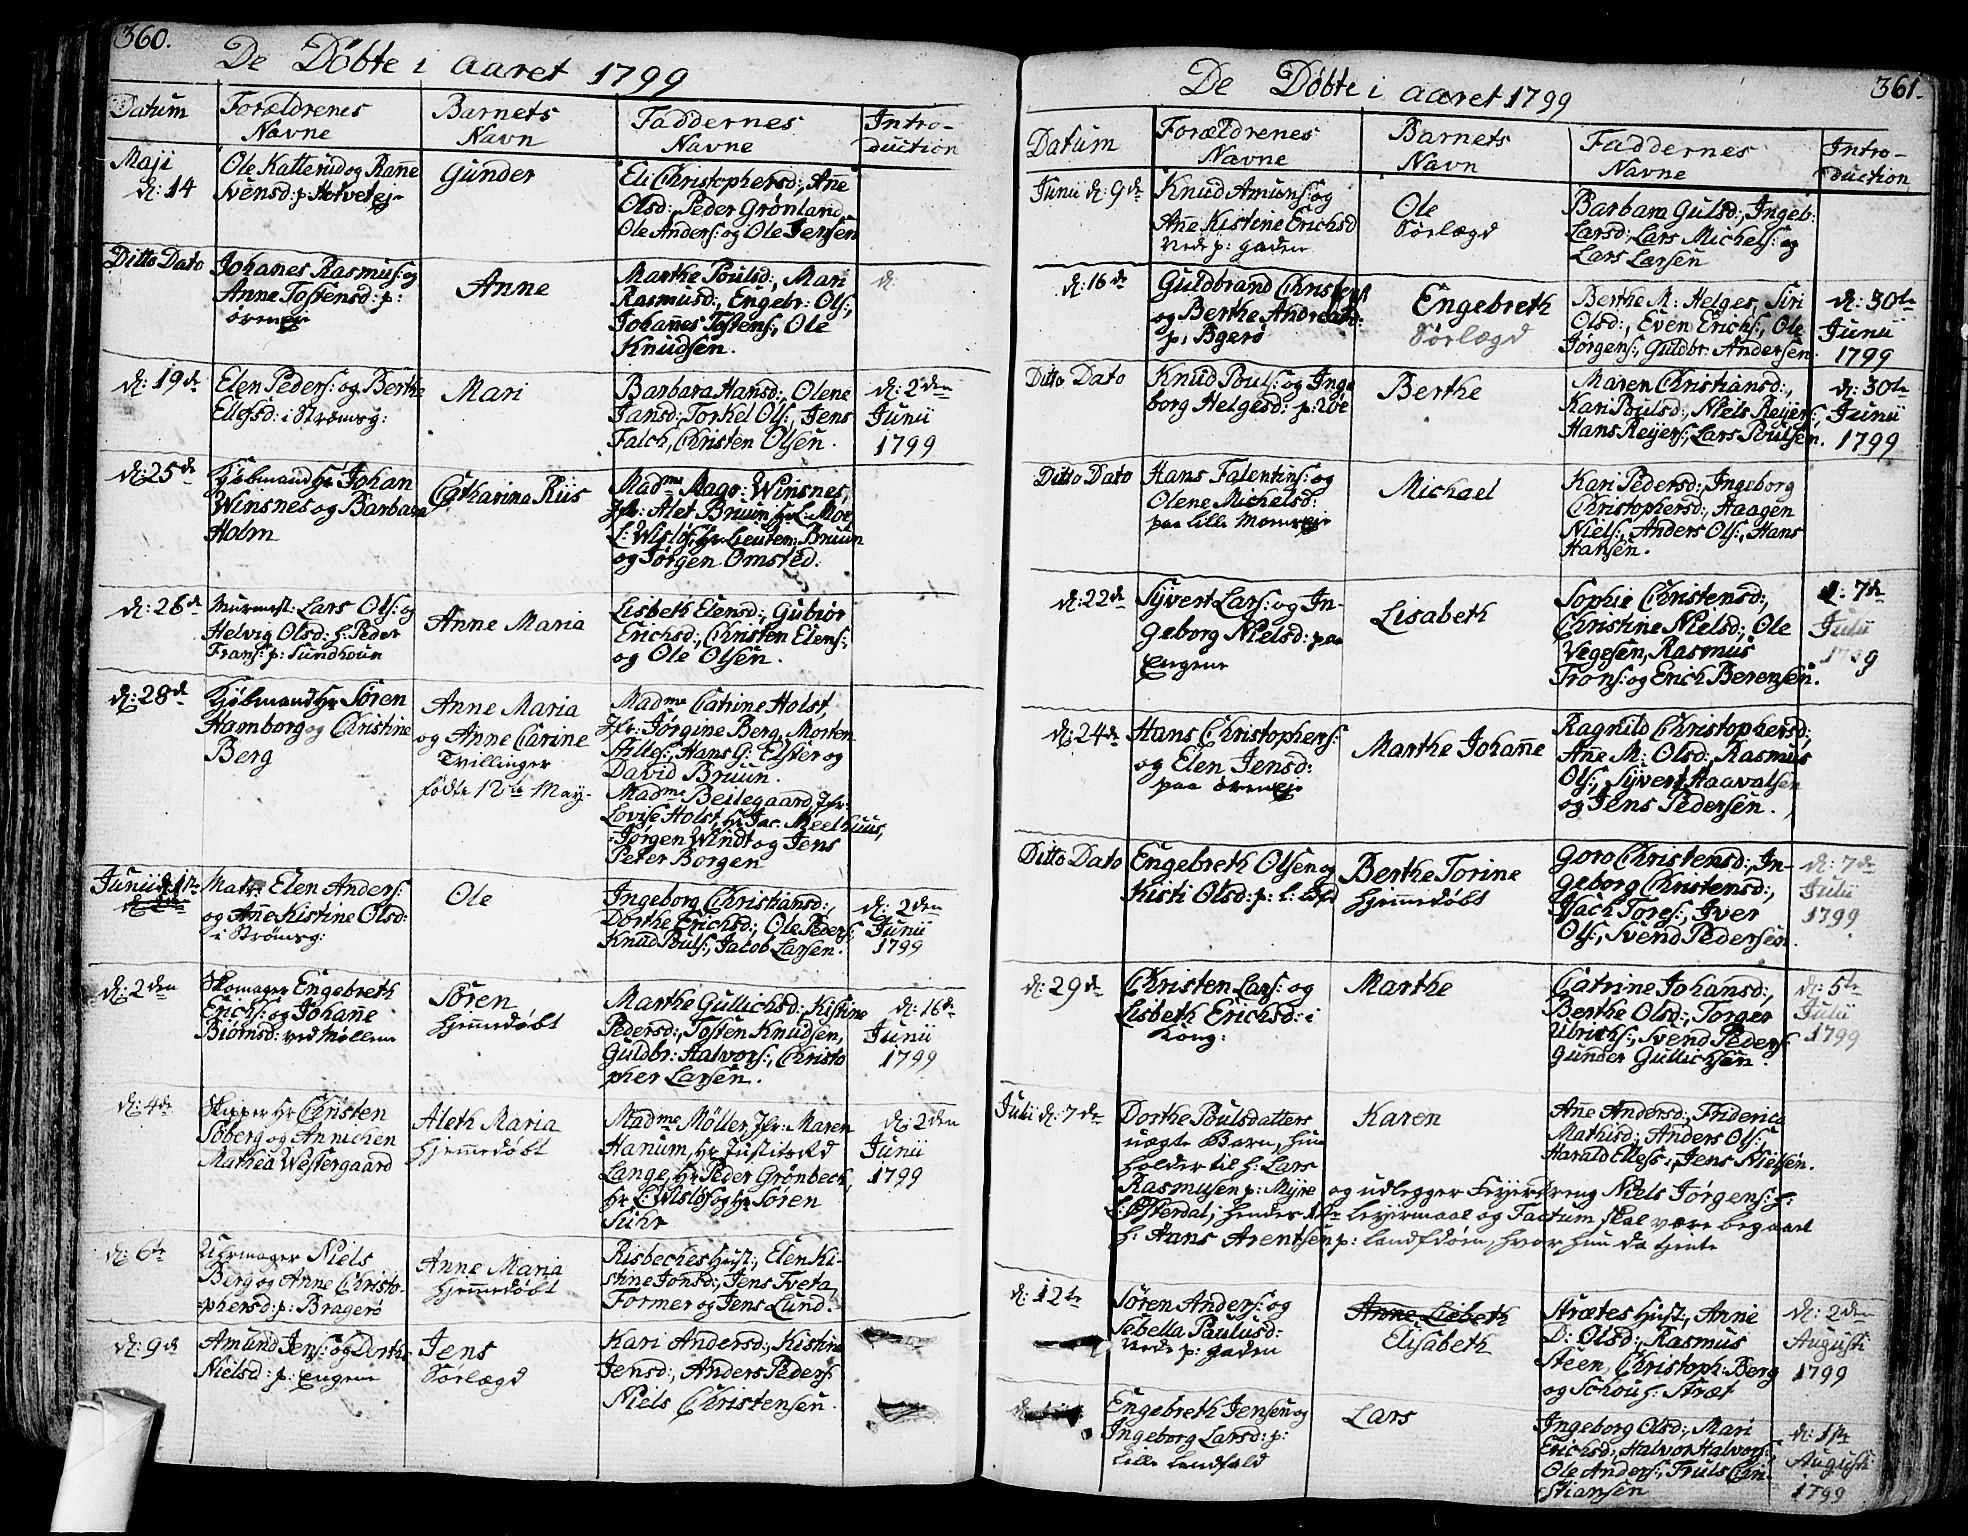 360.
De Döbte i aaret 1799
Datum
Forældrenes
Navne
Barnets
Navn
Faddernes
Navne
Intro-
duction
Maji
d: 14
Ole Katterud og Rañe
Svensd: p:
Gunder
Eli Christophersd:, Añe
Olsd:, Peder Grönland
Ole Anders: og Ole Jensen
Ditto Dato
Johanes Rasmus: og
Anne Tostensd: p:
Anne
Marthe Poulsd:, Mari
Rasmusd:, Engebr: Ols:,
Johañes Tostens:, Ole
Knudsen.
d:
d: 19de
Elen Peders: og Berthe
Ellefsd: i Strömsg:
Mari
Barbara Hansd:, Olene
Jansd:, Torkel Ols:, Jens
Falch, Christen Olsen.
d: 2den
Junii
1799
d: 25de
Kjöbmand Hr Johan
Winsnes og Barbara
Holm
Catharina Riis
Madme Aago: Winsnes,
Jfr: Alet Bruun, Hr L: Moe,
L: Wislöf, Hr Lieuten: Bruun
og Jörgen Omsted.
d: 28de
Murmest: Lars Ols: og
Helvig Olsd: h: Peder
Frans: p: Sundhoun
Anne Maria
Lisbeth Elensd:, Gubiör
Erichsd:, Christen Elens:
og Ole Olsen.
d: 28de
Kjöbmand Hr Sören
Hamborg og Christine
Berg
Anne Maria
og Anne Carine
Tvillinger
födte 12te May.
Madme Catrine Holst,
Jfr: Jörgine Berg, Morten
Hans G: Elster og
David Bruun.
Madme Beilegaard, Jfr:
Lovise Holst, Hr Jac: Meelhuus,
Jörgen Windt og Jens
Peter Borgen
Junii d: 1te
Matr: Elen Anders:
og Añe Kistine Olsd:
i Strömsg:
Ole
Ingeborg Christiansd:,
Dorthe Erichsd:, Ole Peders:,
Knud Pouls:, Jacob Larsen.
d: 2den
Junii
1799
d: 2den
Skomager Engebreth
Erichs: og Johane
Biörnsd: ved Möllem
Sören
hjemedöbt
Marthe Gullichsd:, Kistine
Pedersd:, Tosten Knudsen,
Guldbr: Halvors:, Christo
pher Larsen.
d: 16de
Junii
1799
d: 4de
Skipper Hr Christen
Söberg og Annichen
Mathea Westergaard
Aleth Maria
hjemedöbt
Madme Möller, Jfr: Maren
Hanum, Hr Justitsrd
Lange, Hr Peder Grönbech,
Hr L: Wislöf og Hr Sören
Suhr
d: 2den
Junii
1799
d: 6te
Uhrmager Niels
Berg og Anne Christo-
phersd: p: Brageröe
Anne Maria
hjemedöbt
Risbeches Hust:, Elen Ki-
stine Jonsd:, Jens Tveta,
Former og Jens Lund.
d: 9de
Amund Jens: og Dorthe
Nielsd: p: Engene
Jens
Sörlægd
Kari Andersd:, Kistine
Jensd:, Anders Peders:
Niels Christensen.
361.
De Döbte i aaret 1799
Datum
Forældrenes
Navne
Barnets
Navn
Faddernes
Navne
Intro-
duction
Junii d: 9de
Knud Amuns: og
Añe Kistine Erichsd
nede p: gaden
Ole
Sörlægd
Barbara Gulsd:, Ingeb:
Larsd:, Lars Michels: og
Lars Larsen
d: 16de
Guldbrand Christens:
og Berthe Andreasd:
p: Bgerö
Engebreth
Sörlægd
Berthe M: Helges, Siri
Olsd:, Even Erichs:, Ole
Jörgens:, Guldbr: Andersen
d: 30te
Junii
1799
Ditto Dato
Knud Pouls: og Inge
borg Helgesd: p:
Berthe
Maren Christiansd:,
Kari Poulsd:, Niels Reijers:,
Hans Reijers:, Lars Poulsen.
d: 30te
Junii
1799
Ditto Dato
Hans Falentins: og
Olene Michelsd:
paa lille
Michael
Kari Pedersd:, Ingeborg
Christophersd:, Haagen
Niels:, Anders Ols:, Hans
Hansen.
d: 22de
Syvert Lars: og In-
geborg Nielsd: paa
Engene
Lisabeth
Sophie Christensd:,
Christine Nielsd:, Ole
Vegesen, Rasmus
Frons: og Erich Berensen.
d: 7de
Julii
1799
d: 24de
Hans Christophers:
og Elen Jensd:
paa
Marthe Johañe
Ragnild Christophersd:,
Añe M: Olsd:, Rasmus
Ols:, Syvert Haavalsen
og Jens Pedersen.
Ditto Dato
Engebreth Olsen og
Kisti Olsd: p: l:
Berthe Torine
hjemedöbt
Goro Christensd:, In-
geborg Christensd:,
Isach Tores:, Iver
Ols:, Svend Pedersen.
d: 7de
Julii
1799
d: 29de
Christen Lars: og
Lisbeth Erichsd: i
Kong:
Marthe
Catrine Johansd:,
Berthe Olsd:, Torger
Ulrichs:, Svend Peders:
Gunder Gullichsen.
d: 5te
Julii
1799
Juli d: 7de
Dorthe Poulsdatters
uægte Barn, hun
holder til h: Lars
Rasmusen p: Myre og udlegger Feyerdreng Niels Jörgens: h:
L: Österdal; hendes 1te leyermaal og Factum skal være begaaet
h: Hans Arentsen p: Landfdöen, hvor hun da tjente
Karen
Añe Andersd:, Friderica
Mathisd:, Anders Ols:,
Harald Ellefs:, Jens Nielsen.
d: 12te
Sören Anders: og
Sebella Paulusd:
nede p: gaden
Anne Lisbeth
Elisabeth
Strætes Hust, Anne
D: Olsd:, Rasmus
Steen, Christoph: Berg
og Schou h: Stræt
d: 2den
Augusti
1799
Engebreth Jensen og
Ingeborg Larsd: p:
lille Landfald
Lars
Ingeborg Olsd:, Mari
Erichsd:, Halvor Halvors:,
Ole Anders:, Truls Chri-
stiansen
d: 1te
Augusti
1799